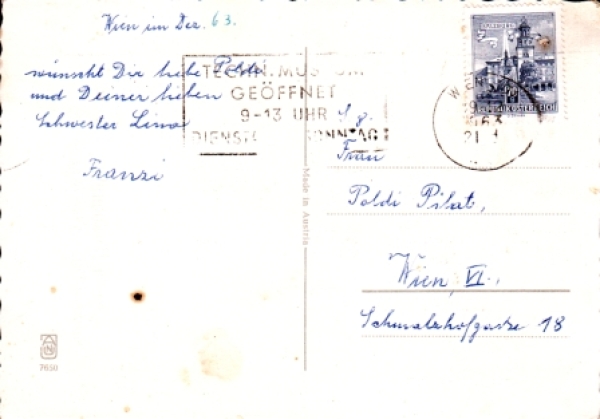 Wien im Dez. 63.
wünscht Dir liebe Poldi
und Deiner lieben
Schwester Lina
Franzi
TECHN. MUSEUM
GEÖFFNET
9-13 UHR
DIENSTAG SONNTAG
Made in Austria
7650
WIEN
63
21
REPUBLIK ÖSTERREICH
S. g.
Frau
Poldi Pilat,
Wien, VI.,
Schmalzhofgasse 18